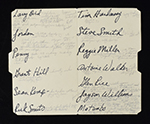 Larry Bird
Jordan
Penny
Grant Hill
Sean Kemp
Rick Smits
Tim Hardaway
Steve Smith
Reggie Miller
Antoine Walker
Glen Rice
Jayson Williams
Mutombo